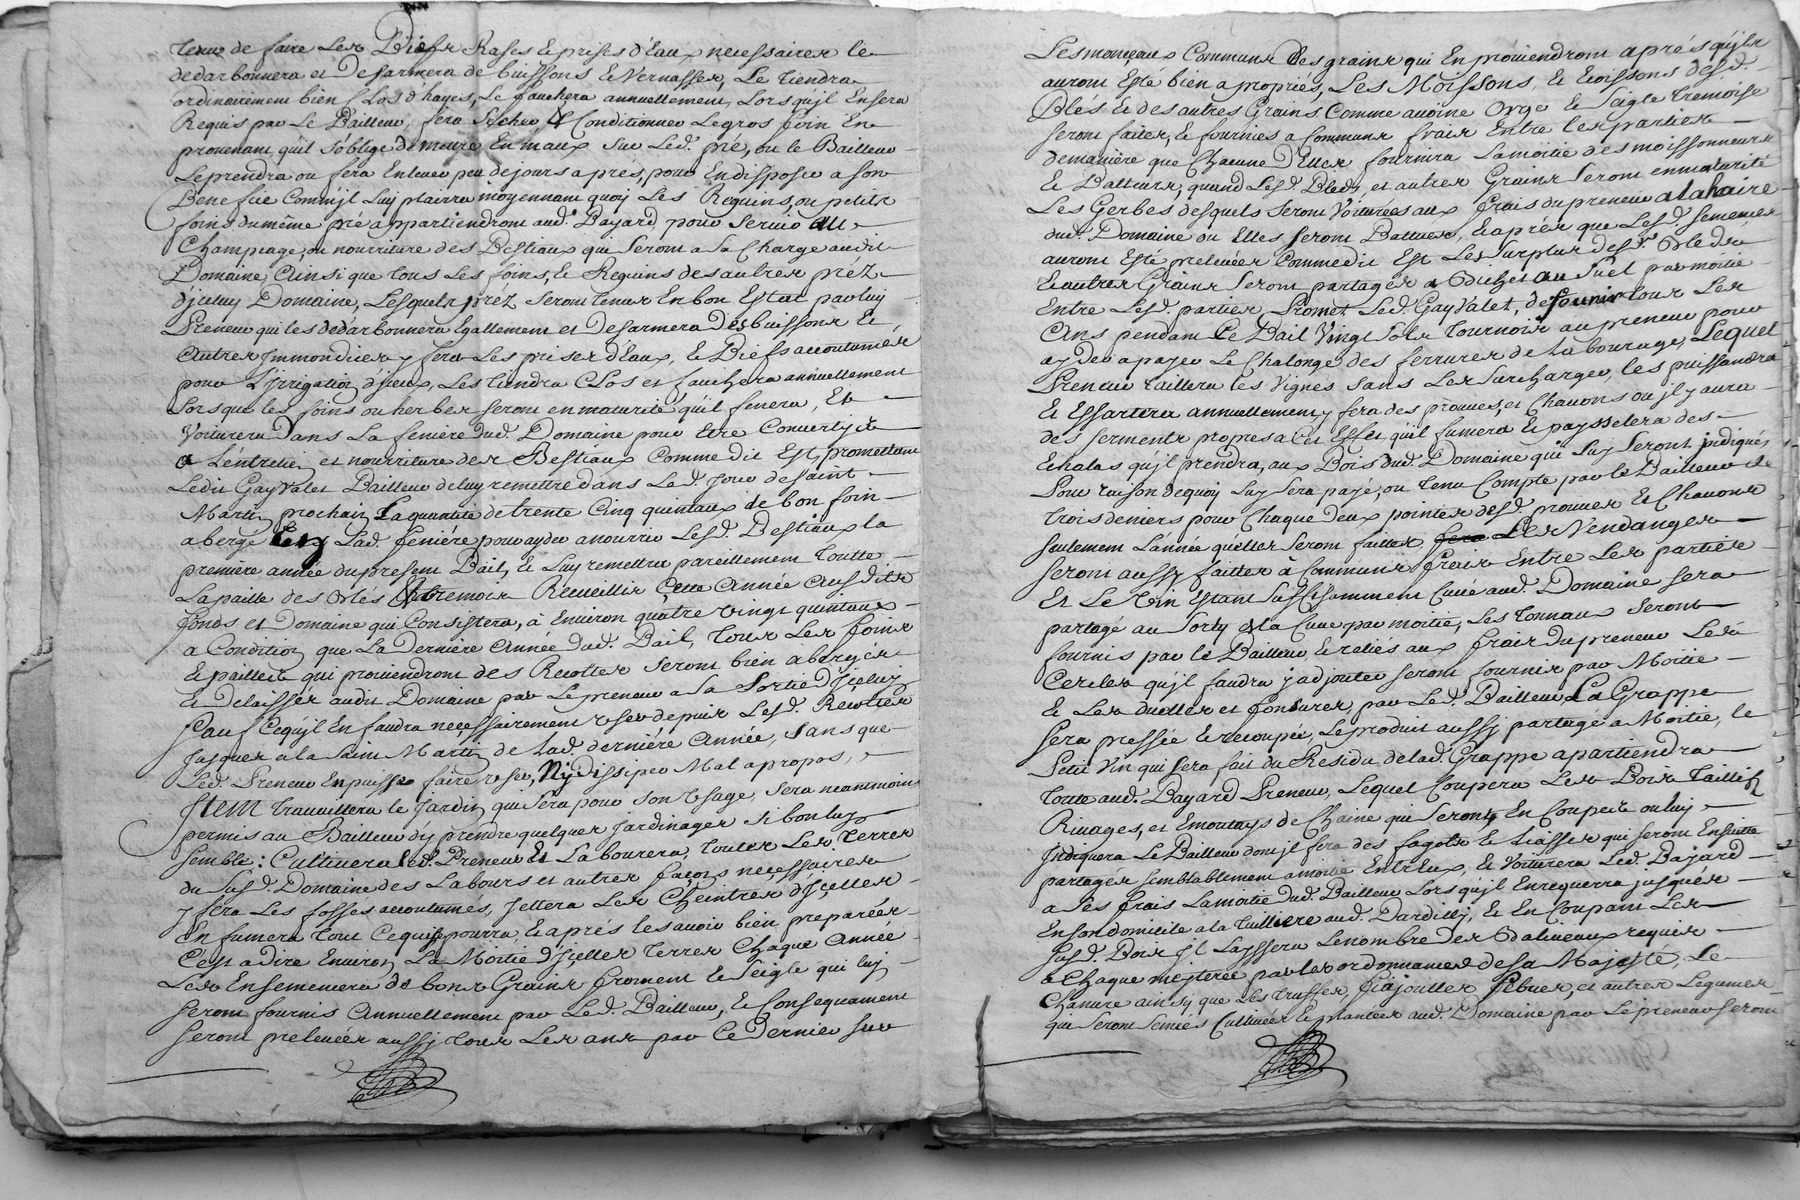 tenu de faire Les Biefs Rases & prises d'Eau necessaires le
dedarbonnera et Desarmera de buissons & Vernasses, Le tiendra
ordinairement bien Clos d'hayes, Le fauchera annuellement, Lorsqu'jl En sera
Requis par Le Bailleur, fera secher, & Conditionner Le gros foin En
provenant, quil s'oblige de mettre En maux sur Led. pré, ou le Bailleur
Le prendra ou fera Enlever peu de jours aprés, pour En disposer a son
Benefice Comm'jl Luy plairra moyennant quoy Les Reguins, ou petits
foins du même pré appartiendront aud. Bayard, pour servir au
Champeage, ou nourriture des Bestiaux qui seront a sa Charge audit
Domaine, Ainsi que tous Les foins, & Reguins des autres préz
d'jceluy Domaine, Lesquels préz seront tenus En bon Estat par luy
Preneur qui les dedarbonnera Egallement et Desarmera Des buissons &
Autres jmmondices y fera Les prises d'Eaux, & Biefs accoutumés
pour L'jrrigation d'jceux, Les tiendra Clos et fauchera annuellement
Lorsque les foins ou herbes seront en maturité qu'il fenera, &
Voiturera Dans La feniere dud. Domaine pour Etre Converty
a L'entretien et nourriture des Bestiaux Comme dit Est, promettant
Ledit Gayvalet Bailleur de luy remettre dans Led. jour de saint
Martin prochain La quantité de trente Cinq quintaux de bon foin
abergé Lad. feniére pour ayder a nourrir Lesd. Bestiaux la
premiére année du present Bail, & Luy remettra pareillement toutte
La paille des Blés & tremois Recueillis Cette Année Ausdits
fonds et Domaine qui Consistera, à Environ quatre vingt quintaux
a Condition que La Derniére Année dud. Bail, tous Les foins
& pailles qui proviendront des Recoltes seront bien abergés
& Delaissés audit Domaine par Le preneur a La Sortie d'jceluy
sauf Ce qu'jl En faudra necessairement user depuis Lesd. Recoltes
jusques a la saint Martin de Lad. derniére Année, sans que
Led. Preneur En puisse faire user, Ny dissiper Mal apropos,
Jtem travaillera le jardin qui sera pour son Usage, sera neanmoins
permis au Bailleur d'y prendre quelques jardinages si bon luy
semble: Cultivera led. Preneur & Labourera, toutes Les terres
du susd. Domaine des Labours et autres façons necessaires
y fera Les fosses accoutumés, jettera Les Cheintres d'jcelles
En fumera tout Ce qu'jl pourra, & aprés les avoir bien preparées
C'est a dire Environ La Moitie d'jcelles terres Chaque Année
Les Ensemencera de bons Grains froment & seigle qui luy
seront fournis Annuellement par Led. Bailleur, & Consequament
seront prelevées aussy tous Les ans par Ce Dernier sur
Les monçeaux Communs des grains qui En proviendront aprés qu'jls
auront Esté bien apropriés, Les Moissons, & Eoissons desd.
Bleds & des autres Grains Comme avoine Orge & Seigle tremoise
seront faites, & fournies a Communs frais Entre les parties
de maniére que Chacune D'Elles fournira La moitie des moissonneurs
& Batteurs, quand Lesd. Bleds et autres Grains seront en maturité
Les Gerbes desquels seront Voiturées aux frais du preneur a la haire
dud. Domaine ou Elles seront Battues, & aprés que Lesd. semences
auront Esté prelevées Comme dit Est Les surplus desd. Bleds
& autres Grains seront partagés a Bichet au Suel par moitie
Entre Lesd. parties Promet Led. Gayvalet, de fournir tous Les
Ans pendant Ce Bail Vingt sols tournois au preneur pour
ayder a payer Le Chalonge des ferrures de Labourage, Lequel
Preneur taillera les Vignes sans Les surcharger, les puissandra
& Essartera annuellement, y fera des provues, et Chavons ou jl y aura
des serments propres a Cet Effet, qu'il fumera & paysselera des
Echalas qu'jl prendra, aux Bois dud. Domaine qui luy seront jndiqués
Pour raison de quoy Luy sera payé, ou tenu Compte par le Bailleur de
trois deniers pour Chaque deux pointes desd. provues & Chavons
seulement L'année qu'elles seront faittes, Les Vendanges
seront aussy faittes a Communs frais Entre Les parties
Et Le Vin Estant suffisamment Cuvé aud. Domaine sera
partagé au sorty de la Cuve par moitie, Les tonnaux seront
fournis par le Bailleur, & reliés aux frais du preneur Les
Cercles qu'jl faudra y adjouter seront fournis par Moitie
& Les duelles et fonsures, par Led. Bailleur, La Grappe
sera pressée & recoupée, Le produit aussy partagé a Moitié, le
Petit Vin qui sera fait du Residu de lad. Grappe apartiendra
toute aud. Bayard Preneur, Lequel Coupera Les Bois taillis
Rivages, et Emoutays de Chaine qui seront En Coupe & ou luy
jndiquera Le Bailleur dont jl fera des fagots & Liasses qui seront Ensuitte
partagés semblablement a moitie Entr'Eux, & Voiturera Led. Bayard
a ses frais La moitie dud. Bailleur Lors qu'jl En requerra jusqués
En son domicile a la tuilliere aud. Dardilly, & En Coupant Les
susd. Bois jl Layssera Le nombre des Baliveaux requis
a Chaque mesterée par les ordonnances de sa Majesté, Le
Chanvre ainsy que Les truffes, fiajoulles febves, et autres Legumes
qui seront semées Cultivées & plantées aud. Domaine par Le preneur seront